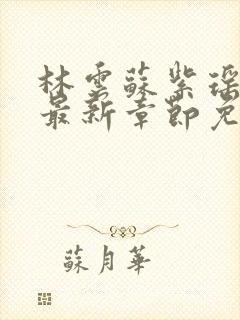 林雲蘇紫瑶
最新章節免
蘇月華